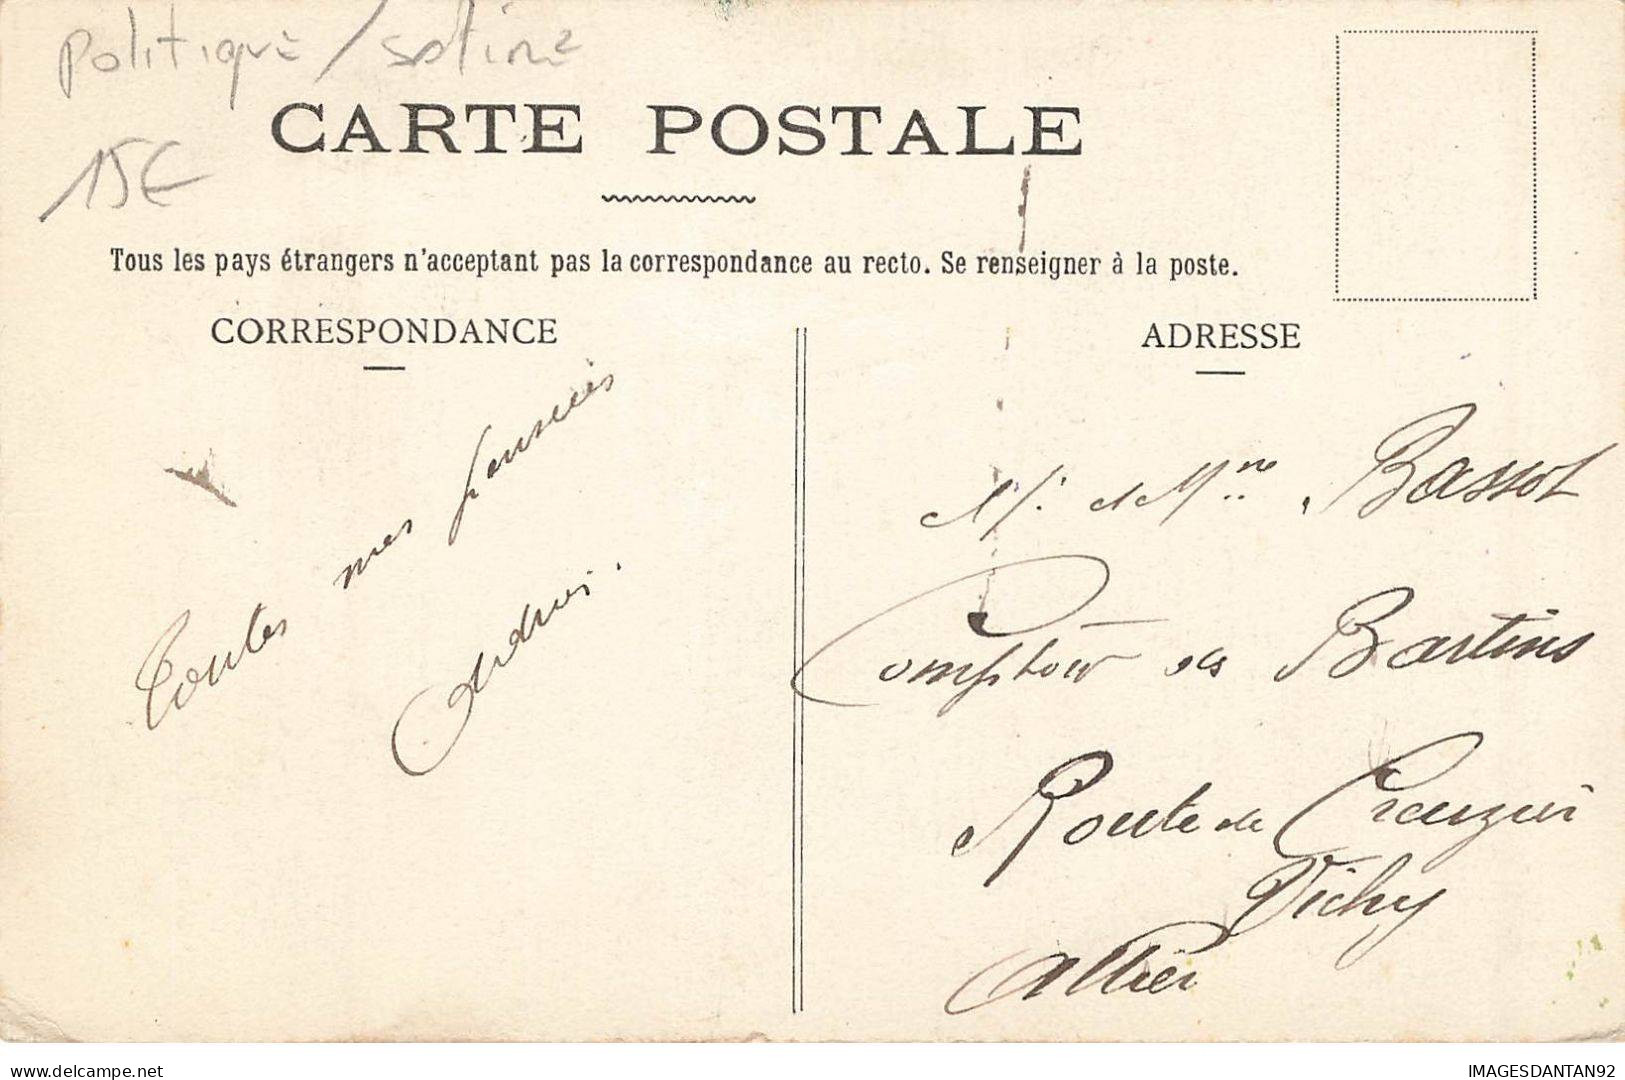 Politique / satire
15€
CARTE POSTALE
Tous les pays étrangers n'acceptant pas la correspondance au recto. Se renseigner à la poste.
CORRESPONDANCE
Toutes mes pensées
ADRESSE
M. et Mme Bassot
Comptoir des Bartins
Route de Creuzier
Vichy
Allier
delcampe.net
IMAGESDANTAN92